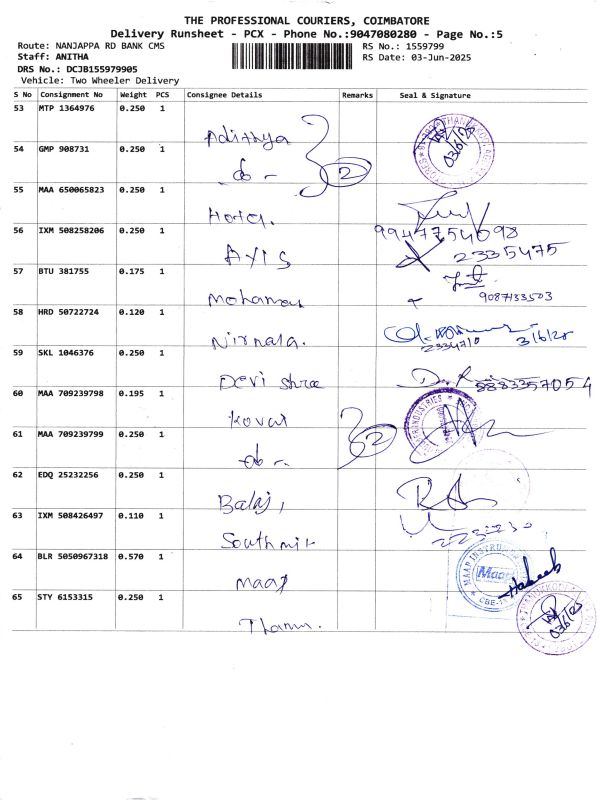 THE PROFESSIONAL COURIERS, COIMBATORE
Delivery Runsheet - PCX - Phone No.:9047080280 - Page No.:5
Route: NANJAPPA RD BANK CMS RS No.: 1559799
Staff: ANITHA RS Date: 03-Jun-2025
DRS No.: DCJB155979905
Vehicle: Two Wheeler Delivery
S No Consignment No Weight PCS Consignee Details Remarks Seal & Signature
53 MTP 1364976 0.250 1 Adithya
54 GMP 908731 0.250 1 do - 2
55 MAA 650065823 0.250 1 Hotel.
9947754098
56 IXM 508258206 0.250 1 AXIS 2335475
57 BTU 381755 0.175 1 9087133503
58 HRD 50722724 0.120 1 Nirmala. 2334710 3/6/25
59 SKL 1046376 0.250 1 Devi shree 9883357054
60 MAA 709239798 0.195 1 Kovai
61 MAA 709239799 0.250 1 do - 2
62 EDQ 25232256 0.250 1 Balaji
63 IXM 508426497 0.110 1
64 BLR 5050967318 0.570 1 Maap Maap Hakeeb
65 STY 6153315 0.250 1